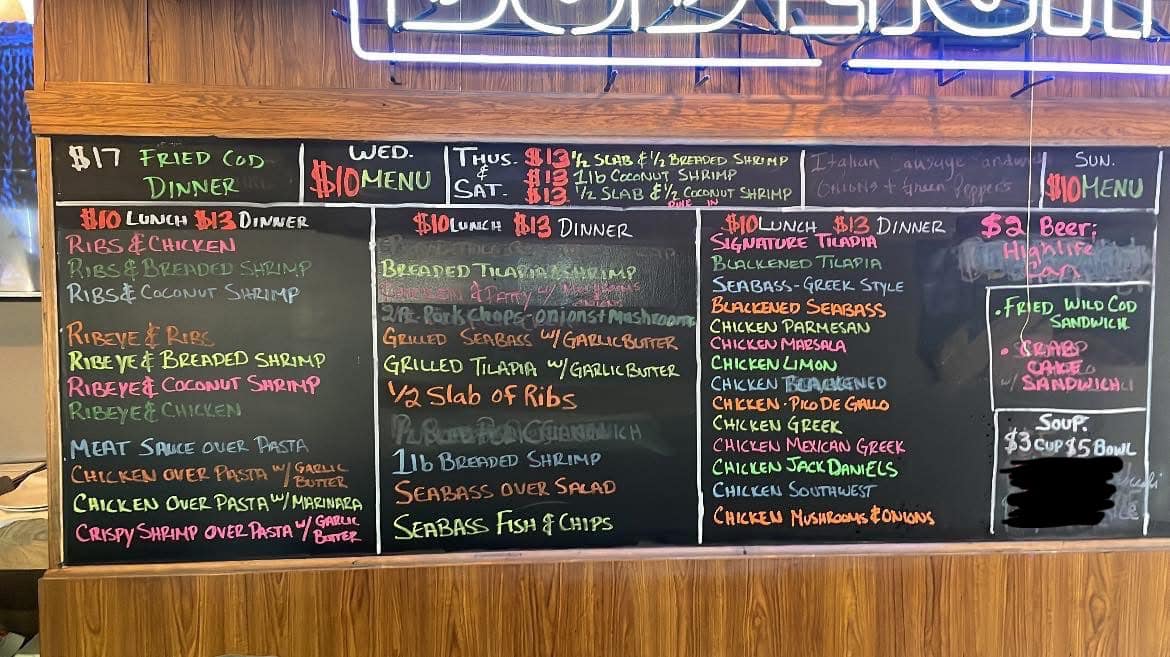 $17 FRIED COD
DINNER
WED.
$10 MENU
THUS.
&
SAT.
$13 1/2 SLAB & 1/2 BREADED SHRIMP
$13 1lb COCONUT SHRIMP
$13 1/2 SLAB & 1/2 COCONUT SHRIMP
DINE IN
Italian Sausage
Onions + Green Peppers
SUN.
$10 MENU
$10 LUNCH $13 DINNER
RIBS & CHICKEN
RIBS & BREADED SHRIMP
RIBS & COCONUT SHRIMP
RIBEYE & RIBS
RIBEYE & BREADED SHRIMP
RIBEYE & COCONUT SHRIMP
RIBEYE & CHICKEN
MEAT SAUCE OVER PASTA
CHICKEN OVER PASTA W/ GARLIC BUTTER
CHICKEN OVER PASTA W/ MARINARA
CRISPY SHRIMP OVER PASTA W/ GARLIC BUTTER
$10 LUNCH $13 DINNER
BREADED TILAPIA & SHRIMP
2 Pc Pork Chops - onions + Mushrooms
GRILLED SEABASS W/ GARLIC BUTTER
GRILLED TILAPIA W/ GARLIC BUTTER
1/2 SLAB OF RIBS
1lb BREADED SHRIMP
SEABASS OVER SALAD
SEABASS FISH & CHIPS
$10 LUNCH $13 DINNER
SIGNATURE TILAPIA
BLACKENED TILAPIA
SEABASS - GREEK STYLE
BLACKENED SEABASS
CHICKEN PARMESAN
CHICKEN MARSALA
CHICKEN LIMON
CHICKEN BLACKENED
CHICKEN - PICO DE GALLO
CHICKEN GREEK
CHICKEN MEXICAN GREEK
CHICKEN JACK DANIELS
CHICKEN SOUTHWEST
CHICKEN MUSHROOMS & ONIONS
$2 Beer:
Highlife
Can
• FRIED WILD COD
SANDWICH
• CRAB
CAKE
W/ SANDWICH
SOUP.
$3 CUP $5 BOWL